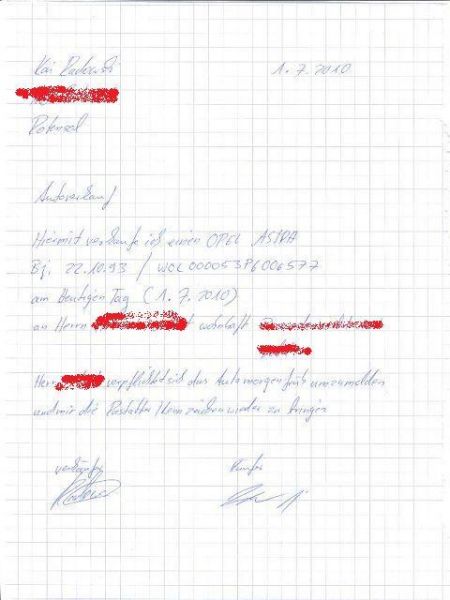 Kai 1.7.2010
Autoverkauf
Hiermit verkaufe ich einen OPEL ASTRA
Bj. 22.10.93 / WOL000053P6006577
am heutigen Tag (1.7.2010)
an Herrn wohnhaft
Herr verpflichtet sich das Auto morgen früh umzumelden
und mir die Rastatter Kennzeichen wieder zu bringen
Verkäufer Käufer